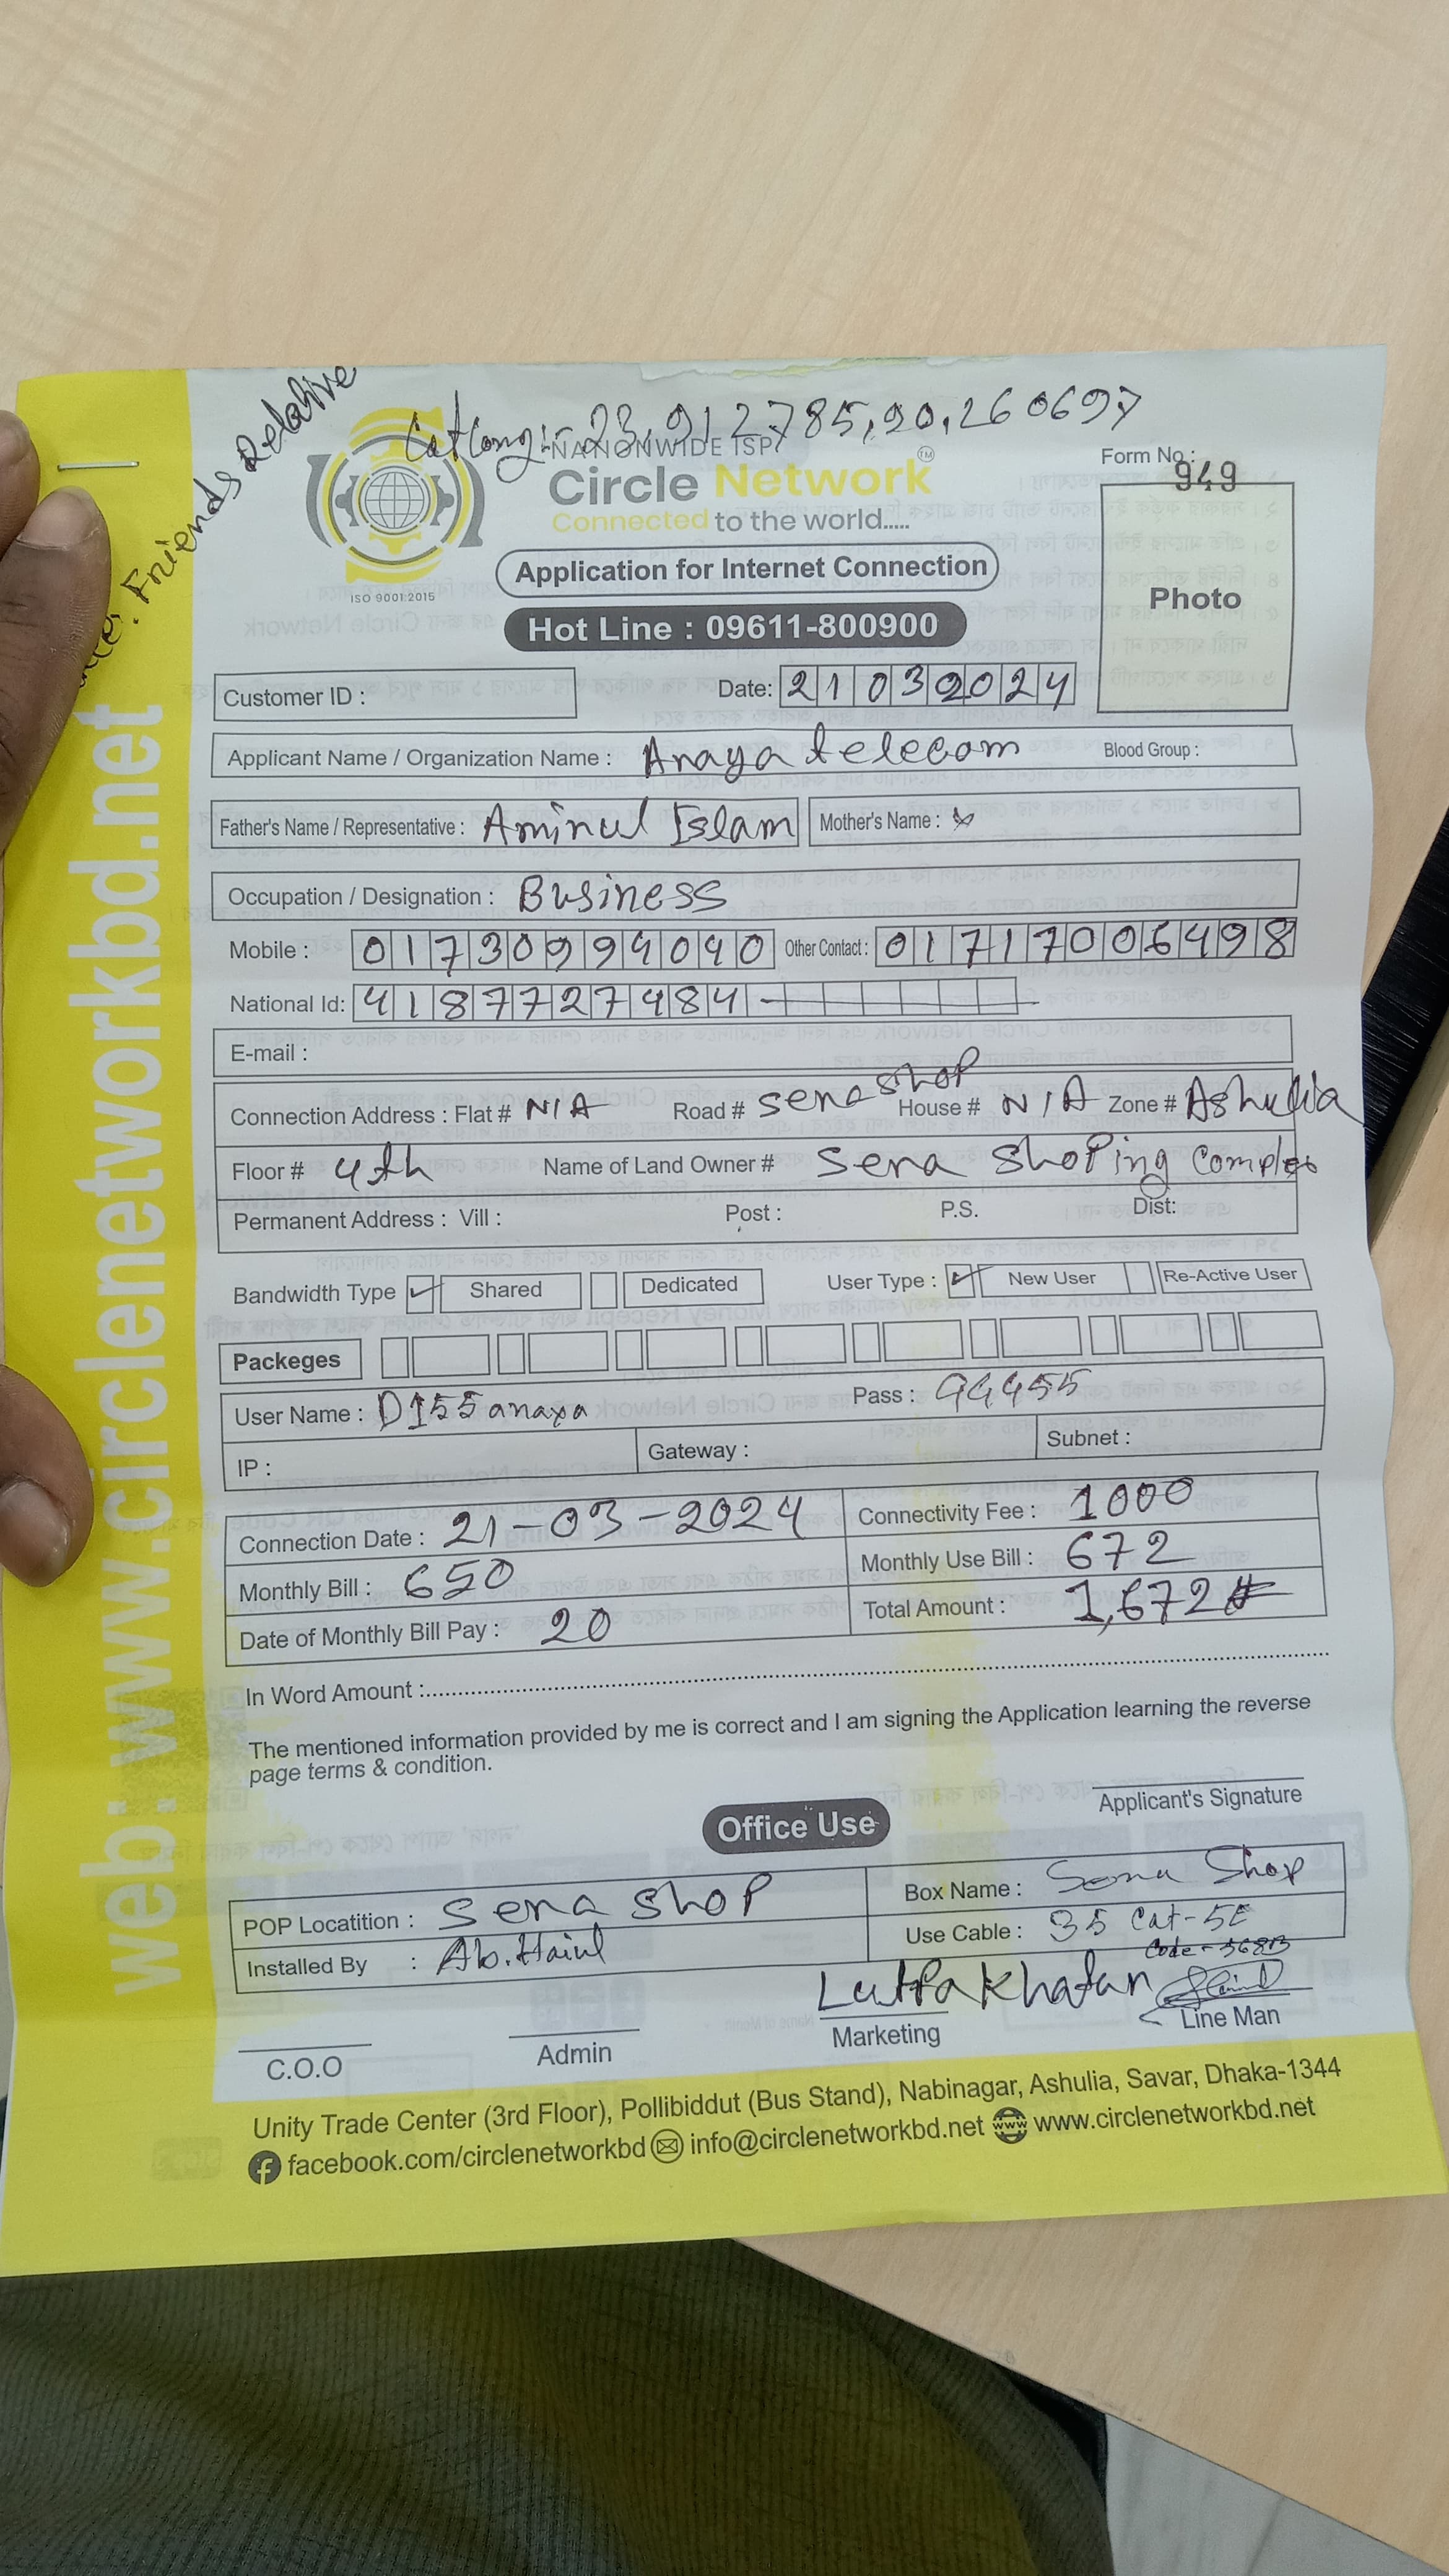 Friends Relative
Latlong:- 23.912785,90.260697
NATIONWIDE ISP
Circle Network TM
Connected to the world.....
ISO 9001:2015
Form No :
949
Photo
Application for Internet Connection
Hot Line : 09611-800900
Customer ID :
Date: 21032024
Applicant Name / Organization Name : Anaya telecom Blood Group :
Father's Name / Representative : Aminul Islam Mother's Name :
Occupation / Designation : Business
Mobile : 01730994040 Other Contact : 01717006498
National Id: 4187727484
E-mail :
Connection Address : Flat # N/A Road # sena shop House # N/A Zone # Ashulia
Floor # 4th Name of Land Owner # Sena Shoping Complex
Permanent Address : Vill : Post : P.S. Dist:
Bandwidth Type Shared Dedicated User Type : New User Re-Active User
Packeges
User Name : D155anaya Pass :
IP : Gateway : Subnet :
Connection Date : 21-03-2024 Connectivity Fee : 1000
Monthly Bill : 650 Monthly Use Bill : 672
Date of Monthly Bill Pay : 20 Total Amount : 1,672
In Word Amount :
The mentioned information provided by me is correct and I am signing the Application learning the reverse
page terms & condition.
Applicant's Signature
Office Use
POP Locatition : sena shop Box Name : Sena Shop
Installed By : Use Cable : 35 Cat-5E
Code-
Lutfa Khatun
C.O.O Admin Marketing Line Man
Unity Trade Center (3rd Floor), Pollibiddut (Bus Stand), Nabinagar, Ashulia, Savar, Dhaka-1344
facebook.com/circlenetworkbd info@circlenetworkbd.net www.circlenetworkbd.net
web: www.circlenetworkbd.net